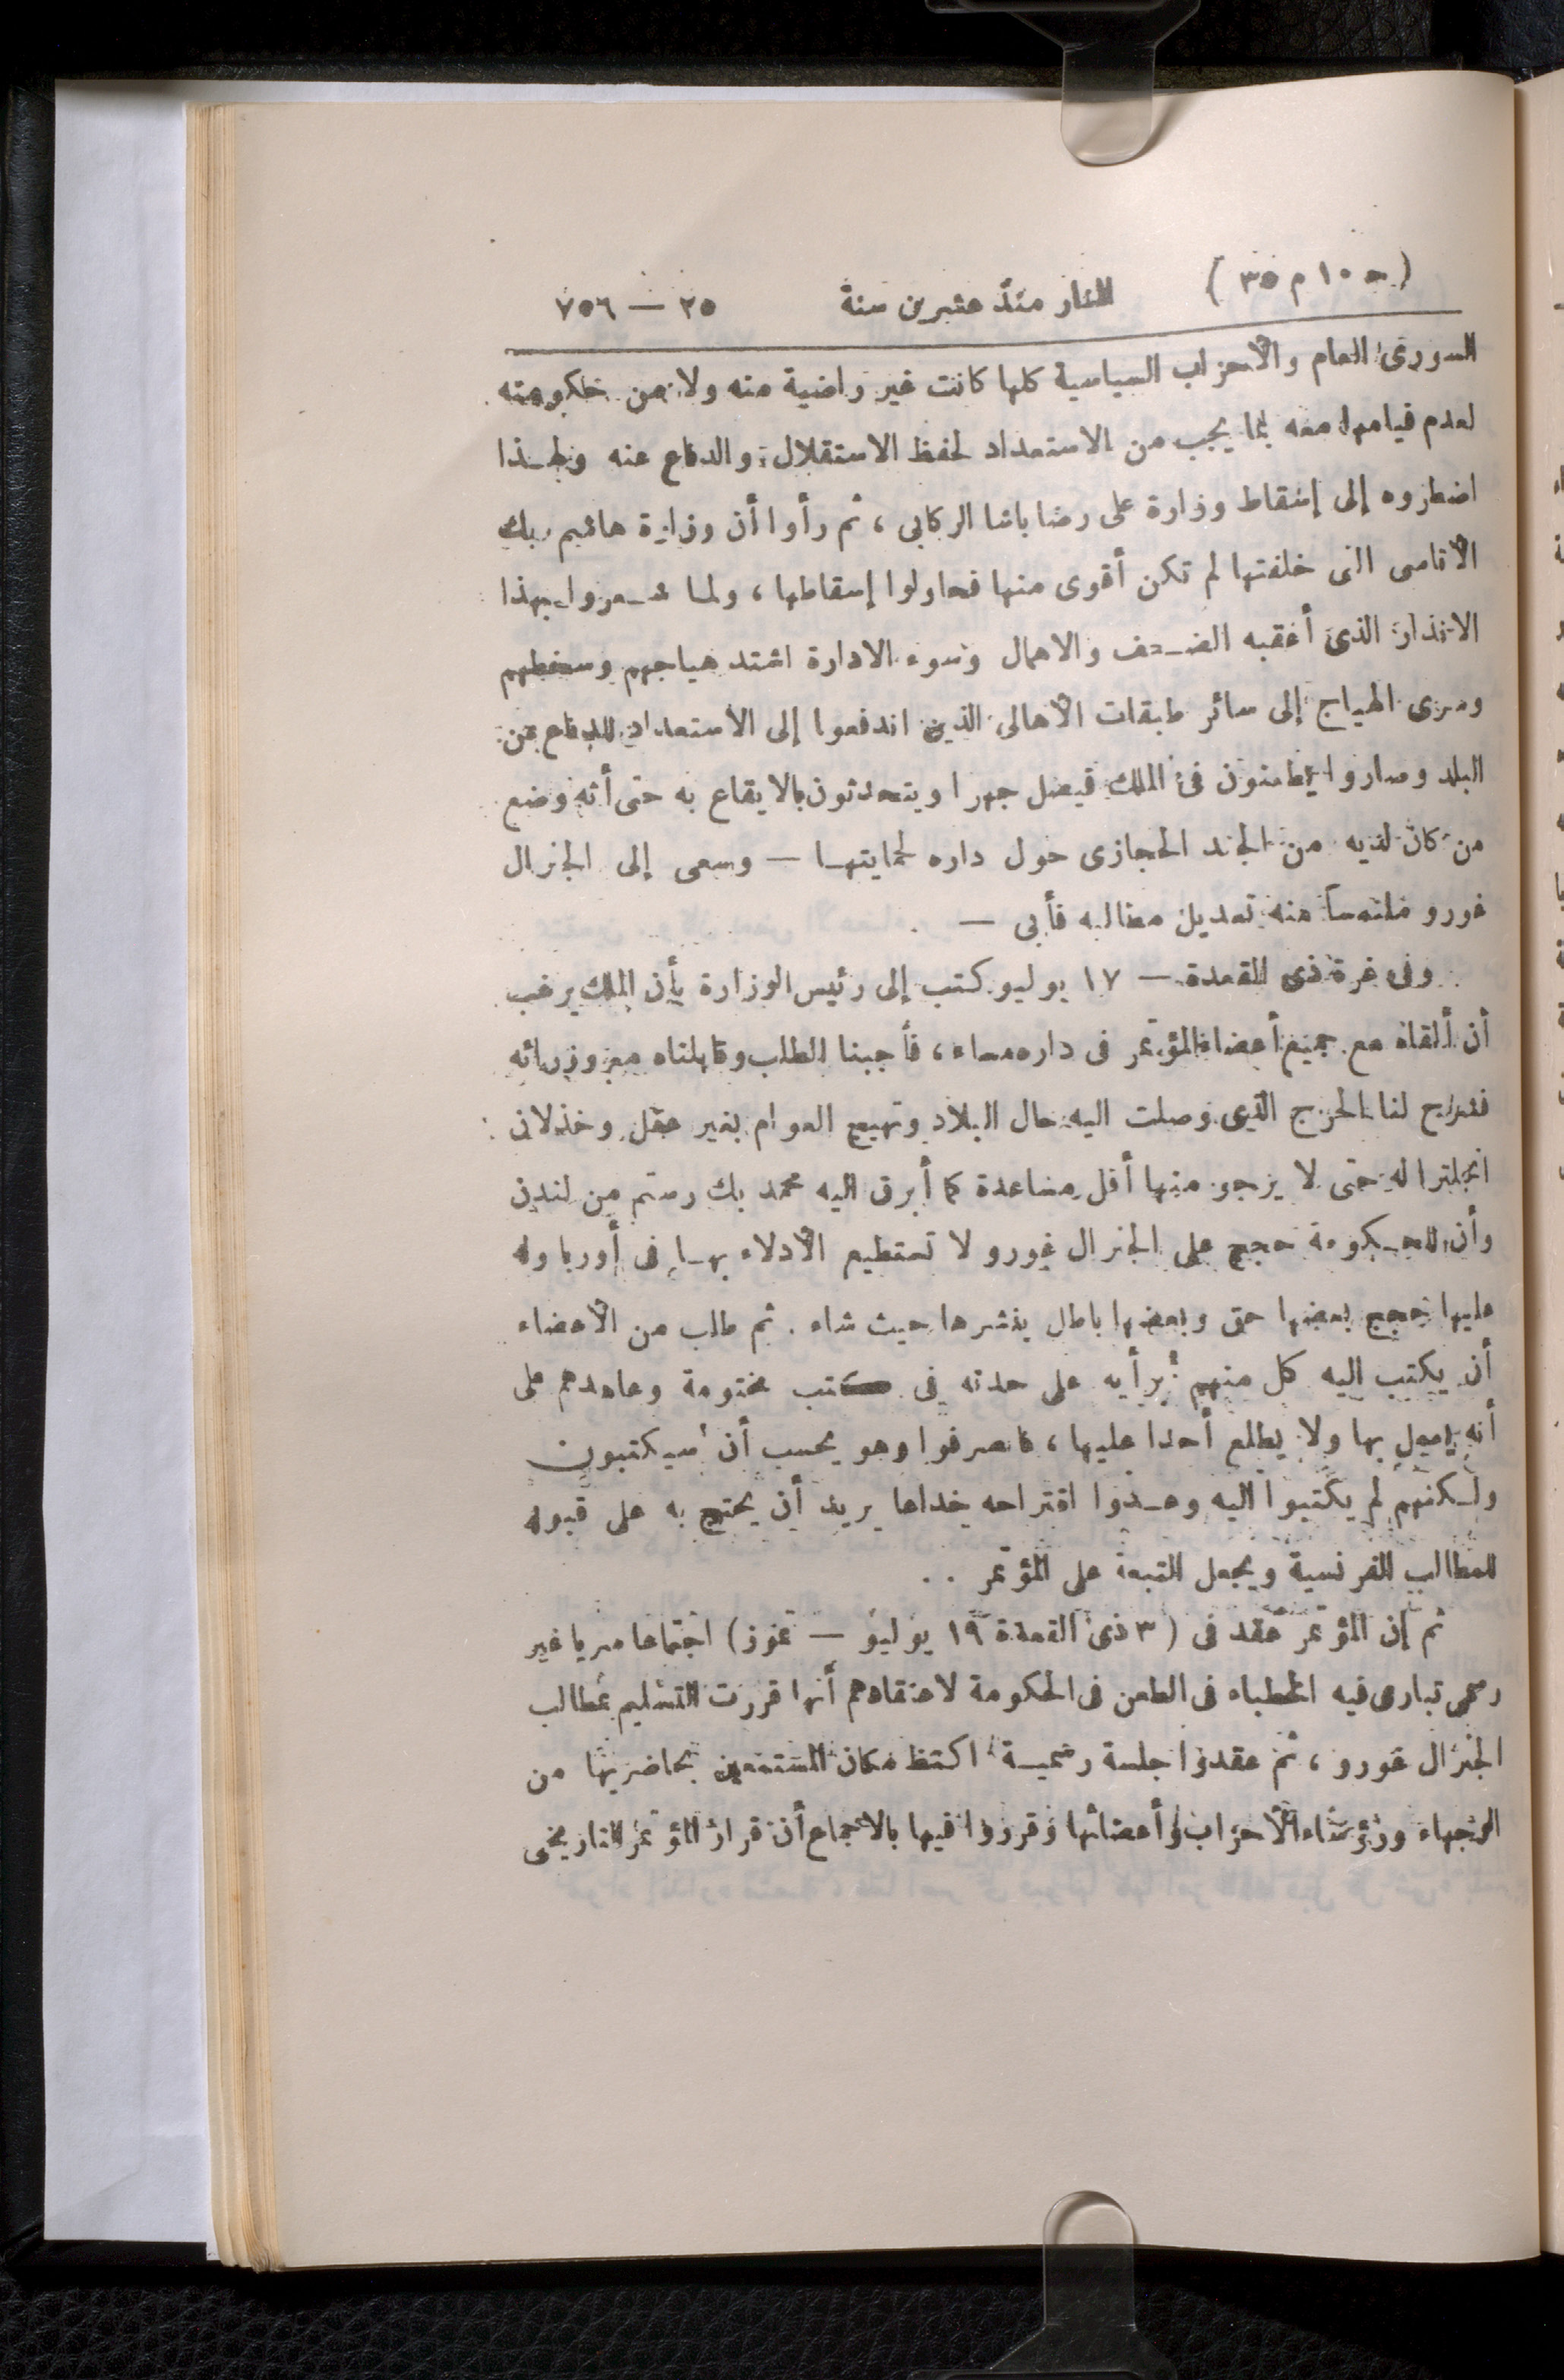 (ج ١٠ م ٣٥) المنار منذ عشرين سنة ٢٥ — ٧٥٦
السورى العام والأحزاب السياسية كلها كانت غير راضية منه ولا من حكومته
لعدم قيامها معه بما يجب من الاستعداد لحفظ الاستقلال والدفاع عنه ولهذا
اضطروه إلى إسقاط وزارة على رضا باشا الركابى ، ثم رأوا أن وزارة هاشم بك
الأتاسى التى خلفتها لم تكن أقوى منها فحاولوا إسقاطها ، ولما شعروا بهذا
الانذار الذى أعقبه الضعف والاهمال وسوء الادارة اشتد هياجهم وسخطهم
وسرى الهياج إلى سائر طبقات الأهالى الذين اندفعوا إلى الاستعداد للدفاع عن
البلد وصاروا يطعنون فى الملك فيصل جهرا ويتحدثون بالايقاع به حتى أنه وضع
من كان لديه من الجند الحجازى حول داره لحمايتها — وسعى إلى الجنرال
غورو ملتمسا منه تعديل مطالبه فأبى —
وفى غرة ذى القعدة — ١٧ يوليو كتب إلى رئيس الوزارة بأن الملك يرغب
أن ألقاه مع جميع أعضاء المؤتمر فى داره مساء ، فأجبنا الطلب وقابلناه مع وزرائه
فشرح لنا الحرج الذى وصلت اليه حال البلاد وتهييج العوام بغير عقل وخذلان
انجلترا له حتى لا يرجو منها أقل مساعدة كما أبرق اليه محمد بك رستم من لندن
وأن للحكومة حجج على الجنرال غورو لا تستطيع الأدلاء بها فى أوربا وله
عليها حجج بعضها حق وبعضها باطل ينشرها حيث شاء . ثم طلب من الأعضاء
أن يكتب اليه كل منهم برأيه على حدته فى كتب مختومة وعاهدهم على
أنه يعمل بها ولا يطلع أحدا عليها ، فانصرفوا وهو يحسب أن سيكتبون
ولكنهم لم يكتبوا اليه وعدوا اقتراحه خداعا يريد أن يحتج به على قبوله
للمطالب الفرنسية ويجعل التبعة على المؤتمر . .
ثم إن المؤتمر عقد فى (٣ ذى القعدة ١٩ يوليو — تموز) اجتماعا سريا غير
رسمى تبارى فيه الخطباء فى الطعن فى الحكومة لاعتقادهم أنها قررت التسليم بمطالب
الجنرال غورو ، ثم عقدوا جلسة رسمية اكتظ مكان المستمعين بحاضريها من
الوجهاء ورؤساء الأحزاب وأعضائها وقرروا فيها بالاجماع أن قرار المؤتمر التاريخى